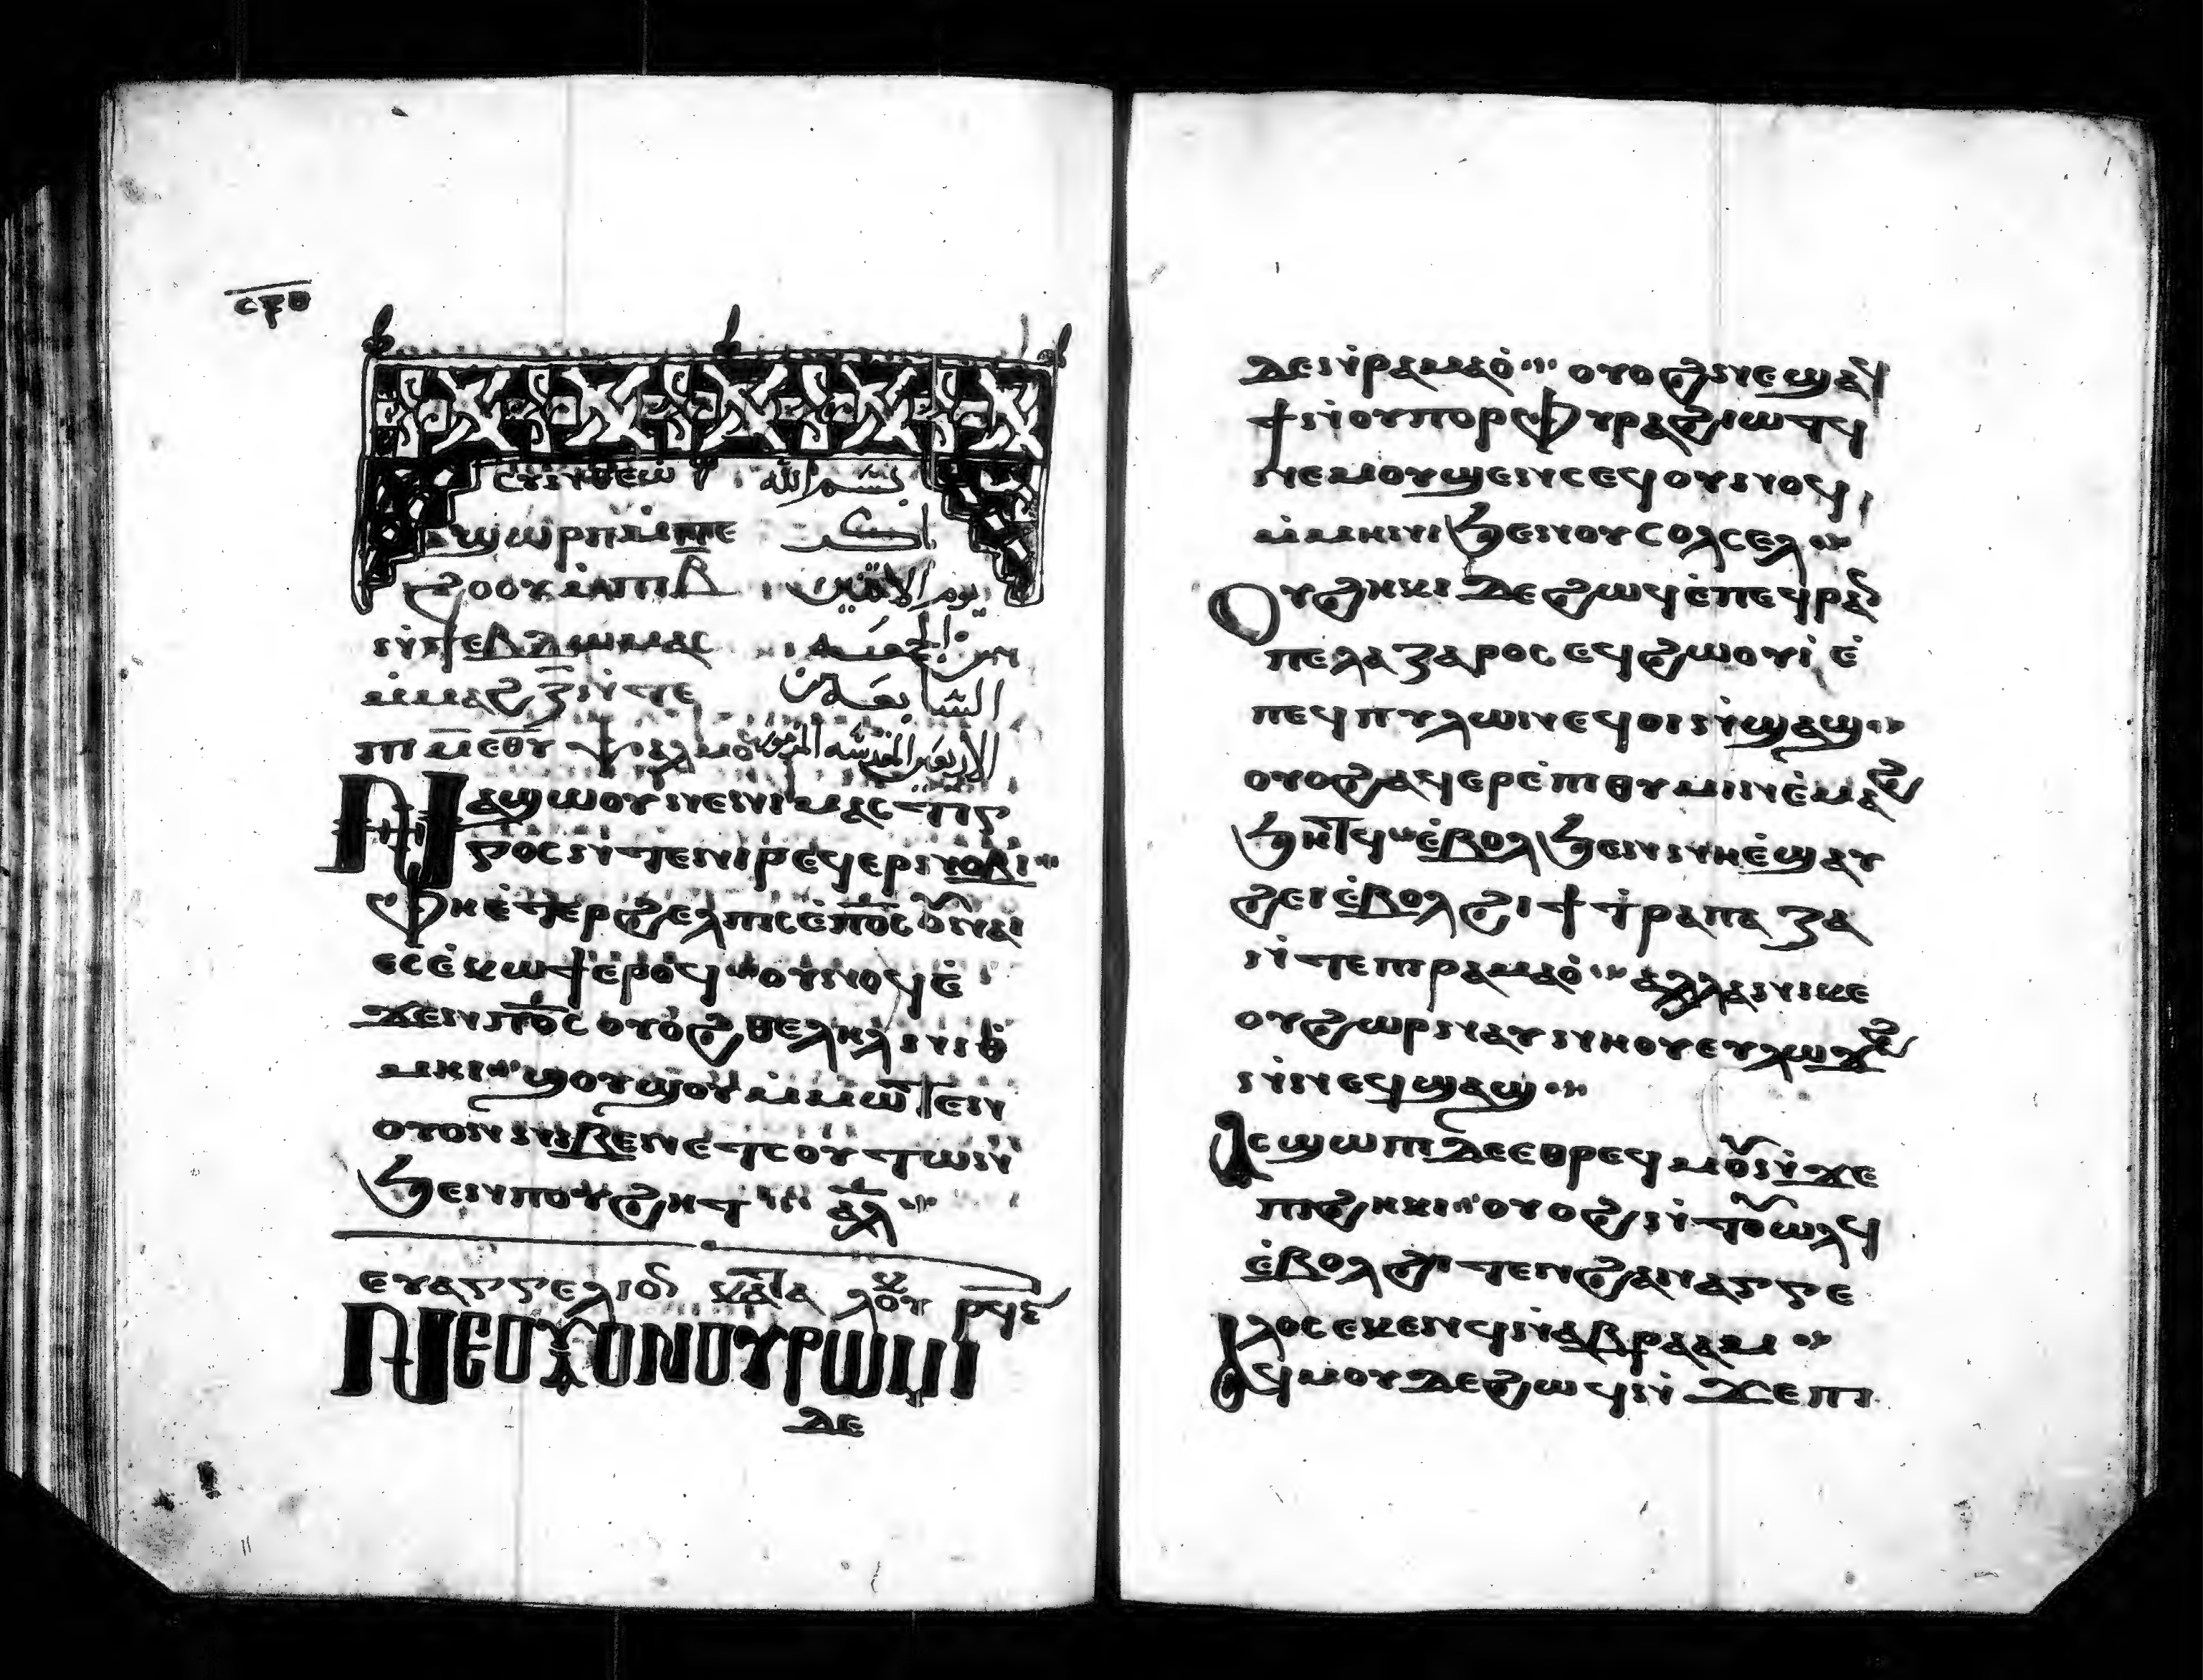 ⲥⲝⲑ
ⲥⲩⲛⲑⲉⲱ بسم الله
ϣⲱⲣⲡ ⲙⲡⲉ باكر
ϩⲟⲟⲩ ⲙⲡⲓⲃ̅ يوم الاثنين
ⲛϯⲉⲃⲇⲱⲙⲁⲥ من الجمعة
ⲙⲙⲁϩ ⲍ̅ ⲛⲧⲉ السابعة من
ⲡⲓⲙ̅ ⲉⲑⲩ ⲯⲁⲗⲙⲟ الاربعين المقدسة
ⲛⲁϣⲱⲟⲩ ⲛⲉⲛⲓⲙⲁⲥⲧⲓⲅ
ⲅⲟⲥ ⲛⲧⲉⲛⲓⲣⲉϥⲉⲣⲛⲟⲃⲓ
ⲫⲏⲉⲧⲉⲣϩⲉⲗⲡⲓⲥ ⲉⲡ̅ⲟ̅ⲥ̅ ⲟⲩⲛⲁⲓ
ⲉⲥⲉⲕⲱϯ ⲉⲣⲟϥ ⲟⲩⲛⲟϥ ⲉ
ϫⲉⲛ ⲡ̅ⲟ̅ⲥ̅ ⲟⲩⲟϩ ⲑⲉⲗⲏⲗ ⲛⲓⲑ
ⲙⲏⲓ ϣⲟⲩϣⲟⲩ ⲙⲙⲱⲧⲉⲛ
ⲟⲩⲟⲛ ⲛⲓⲃⲉⲛ ⲉⲧⲥⲟⲩⲧⲱⲛ
ϧⲉⲛ ⲡⲟⲩϩⲏⲧ ⲁⲗ
ⲉⲩⲁⲅⲅⲉⲗⲓⲟⲛ ⲕⲁⲧⲁ ⲗⲟⲩⲕ ⲣϥⲉ
ⲛⲉⲟⲩⲟⲛ ⲟⲩⲣⲱⲙⲓ
ⲇⲉ
ⲇⲉ ⲛⲣⲁⲙⲁⲟ ⲟⲩⲟϩ ⲛⲉϣⲁϥ
ϯ ⲛⲟⲩⲡⲟⲣⲫⲩⲣⲁ ϩⲓⲱⲧϥ
ⲛⲉⲙ ⲟⲩϣⲉⲛⲥ ⲉϥⲟⲩⲛⲟϥ
ⲙⲙⲏⲛⲓ ϧⲉⲛ ⲟⲩⲥⲟⲗⲥⲉⲗ
ⲟⲩϩⲏⲕⲓ ⲇⲉ ϩⲱϥ ⲉⲡⲉϥⲣⲁⲛ
ⲡⲉ ⲗⲁⲍⲁⲣⲟⲥ ⲉϥϩⲱⲟⲩⲓ ⲉ
ⲡⲉϥⲡⲩⲗⲱⲛ ⲉϥⲟⲓ ⲛϣⲁϣ
ⲟⲩⲟϩ ⲁϥⲉⲣⲉⲡⲓⲑⲩⲙⲓⲛ ⲉⲙⲁϩ
ϧⲏⲧϥ ⲉⲃⲟⲗ ϧⲉⲛ ⲛⲏⲉϣⲁⲩ
ϩⲉⲓ ⲉⲃⲟⲗ ϩⲓ ϯⲧⲣⲁⲡⲁⲍⲁ
ⲛⲧⲉ ⲡⲓⲣⲁⲙⲁⲟ ⲁⲗⲗⲁ ⲛⲓⲕⲉ
ⲟⲩϩⲱⲣ ⲛⲁⲩⲛⲏⲟⲩ ⲉⲩⲗⲱϫϩ
ⲛⲛⲉϥϣⲁϣ
ⲁⲥϣⲱⲡⲓ ⲇⲉ ⲉⲑⲣⲉϥⲙⲟⲩ ⲛϫⲉ
ⲡⲓϩⲏⲕⲓ ⲟⲩⲟϩ ⲛⲧⲟⲩⲟⲗϥ
ⲉⲃⲟⲗϩⲓⲧⲉⲛ ϩⲁⲛⲁⲅⲅⲉ
ⲗⲟⲥ ⲉⲕⲉⲛϥ ⲛⲁⲃⲣⲁⲁⲙ
ⲁϥⲙⲟⲩ ⲇⲉ ϩⲱϥ ⲛϫⲉ ⲡⲓ